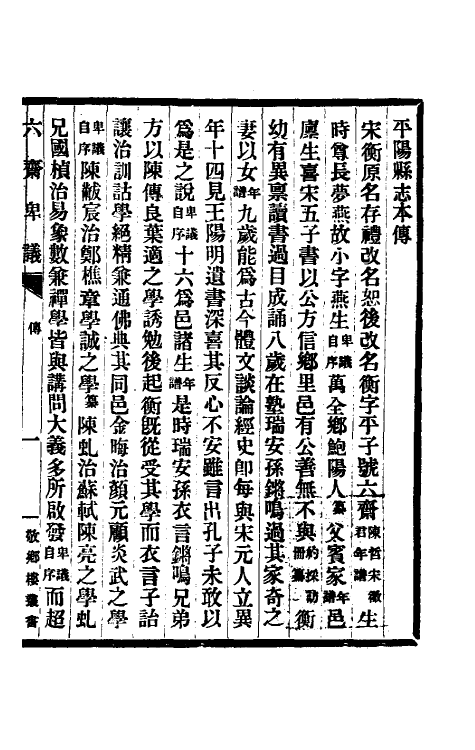 平陽縣志本傳
宋衡原名存禮改名恕後改名衡字平子號六齋陳哲宋徵君年譜生
時尊長夢燕故小字燕生卑議自序萬全鄉鮑陽人纂父賓家年譜邑
廩生喜宋五子書以公方信鄉里邑有公善無不與約採訪冊纂衡
幼有異禀讀書過目成誦八歲在塾瑞安孫鏘鳴過其家奇之
妻以女年譜九歲能爲古今體文談論經史卽每與宋元人立異
年十四見王陽明遺書深喜其反心不安雖言出孔子未敢以
爲是之說卑議自序十六爲邑諸生年譜是時瑞安孫衣言鏘鳴兄弟
方以陳傅良葉適之學誘勉後起衡旣從受其學而衣言子詒
讓治訓詁學絕精兼通佛典其同邑金晦治顏元顧炎武之學
卑議自序陳黻宸治鄭樵章學誠之學纂陳虬治蘇軾陳亮之學虬
兄國楨治易象數兼禪學皆與講問大義多所啟發卑議自序而超
六齋卑議 傳 一 敬鄉樓叢書